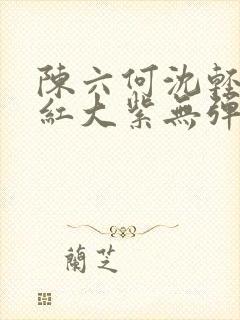 陳六何沈輕
紅大紫無彈
蘭芝